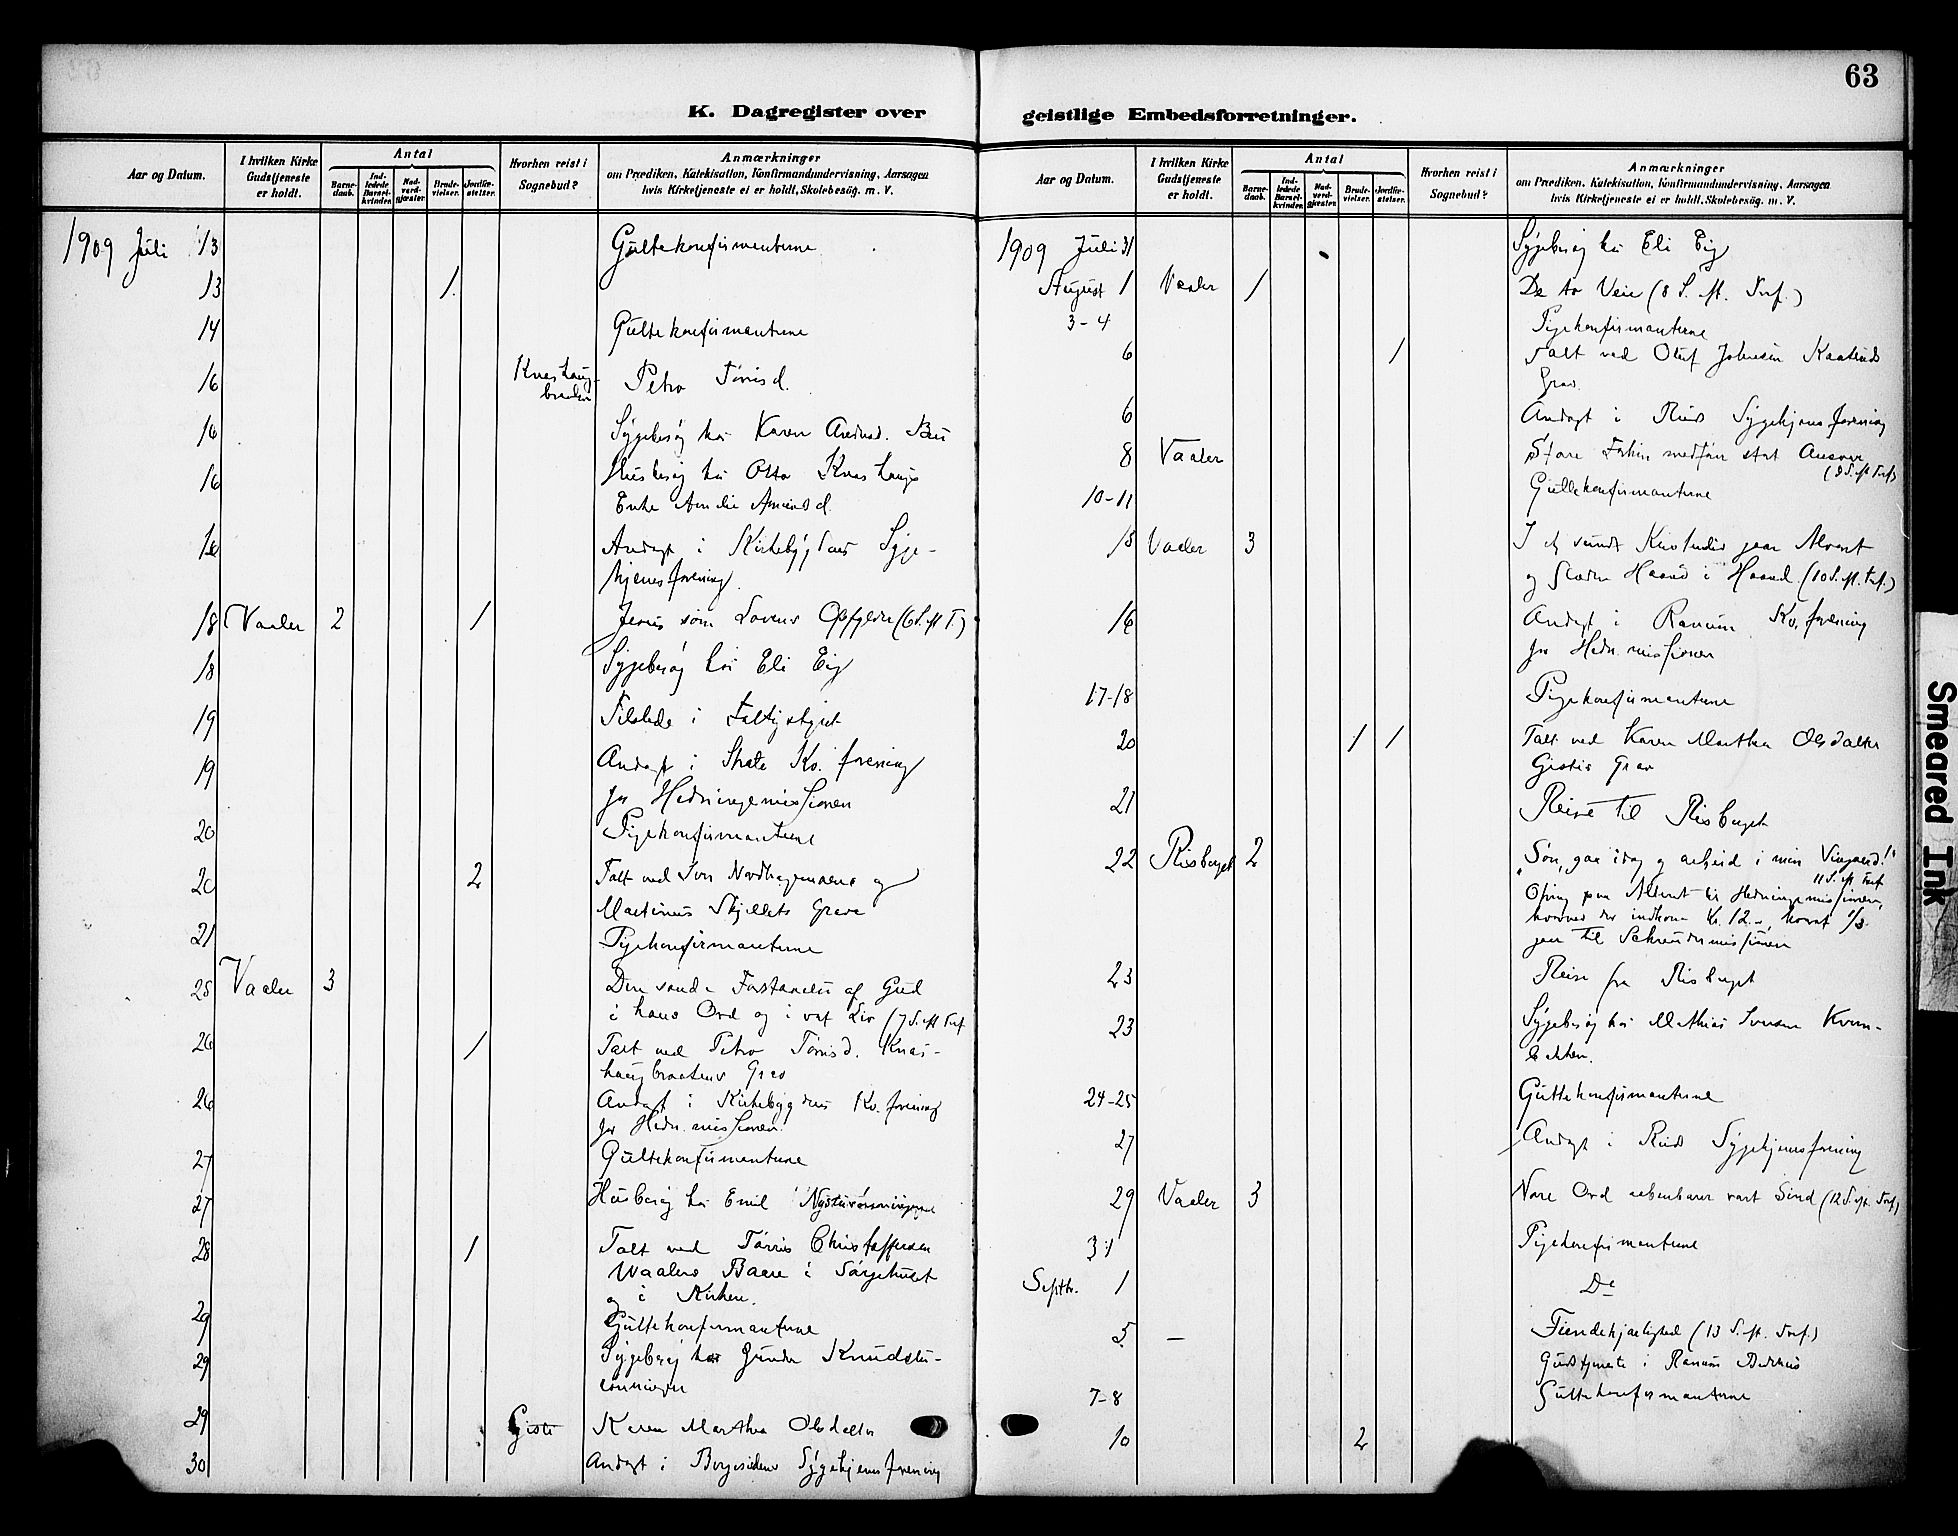 63
K. Dagregister over geistlige Embedsforretninger.
Aar og Datum.
I hvilken Kirke Gudstjeneste er holdt.
Antal
Barne-daab.
Ind-ledede Barsel-kvinder.
Nad-verd-gjæster.
Brude-vielser.
Jordfæ-stelser.
Hvorhen reist i Sognebud?
Anmærkninger
om Prædiken, Katekisation, Konfirmandundervisning, Aarsagen
hvis Kirketjeneste ei er holdt, Skolebesøg. m. V.
1909 Juli 13 Guttekonfirmanterne
13 1
14 Guttekonfirmanterne
16 Petra Tørrisd.
16 Sygebesøg hos Karen
16 Husbesøg hos Otto
Enke
16 Andagt i Kirkebygdens Syge-
hjemsforening
18 Vaaler 2 1 Jesus som Lovens Opfylder (6 S. e. Tr.)
18 Sygebesøg hos Eli Eig
19 Tilstede i
19 Andagt i Kv. forening
for Hedningemissionen
20 Pigekonfirmanterne
20 2 Talt ved Iver og
Martinus Skjellets Grave
21 Pigekonfirmanterne
25 Vaaler 3 Den sande Forstaaelse af Gud
i hans Ord og i vort Liv (7 S. eft. Tref.
26 1 Talt ved Petra Tørrisd. Knas-
haugbraatens Grav
26 Andagt i Kirkebygdens Kv. forening
for Hedn. missionen
27 Guttekonfirmanterne
27 Husbesøg hos Emil
28 1 Talt ved Tørris Christoffersen
Waalers Baare i Sørgehuset
og i Kirken.
29 Guttekonfirmanterne
29 Sygebesøg hos
29 Karen Marthea Olsdatter
30 Andagt i Sygehjemsforening
Aar og Datum.
I hvilken Kirke Gudstjeneste er holdt.
Antal
Barne-daab.
Ind-ledede Barsel-kvinder.
Nad-verd-gjæster.
Brude-vielser.
Jordfæ-stelser.
Hvorhen reist i Sognebud?
Anmærkninger
om Prædiken, Katekisation, Konfirmandundervisning, Aarsagen
hvis Kirketjeneste ei er holdt, Skolebesøg. m. V.
1909 Juli 31 Sygebesøg hos Eli Eig
August 1 Vaaler 1 De to Veie (8 S. eft. Tref.)
3-4 Pigekonfirmanterne
6 1 Talt ved Oluf Johnsen
Grav.
6 Andagt i Ruds Sygehjemsforening
8 Vaaler Store medfører stort Ansvar
(9 S. eft Tref)
10-11 Guttekonfirmanterne
15 Vaaler 3 I et sundt Kristenliv gaar Alvoret
og Glæden Haand i Haand. (10 S. eft. Tref.)
16 Andagt i Ranum Kv. forening
for Hedn. missionen
17-18 Pigekonfirmanterne
20 1 1 Talt ved Karen Marthea Olsdatter
Gistis Grav
21 Reise til Risberget
22 Risberget 2 "Søn, gaa idag og arbeid i min Vingaard!"
11 S. eft Tref
Ofring paa Alteret til Hedningemissionen,
hvorved der indkom Kr. 12.-, hvoraf 1/3
gaar til Schreudermissionen
23 Reise fra Risberget
23 Sygebesøg hos Mathias Iversen
24-25 Guttekonfirmanterne
27 Andagt i Ruds Sygehjemsforening
29 Vaaler 3 Vore Ord aabenbarer vort Sind (12 S. eft. Tref)
31 Pigekonfirmanterne
Septbr. 1 Do
5 — Fiendekjærlighed (13 S. eft. Tref.)
Gudstjeneste i Ranum
7-8 Guttekonfirmanterne
10 2
Smeared Ink